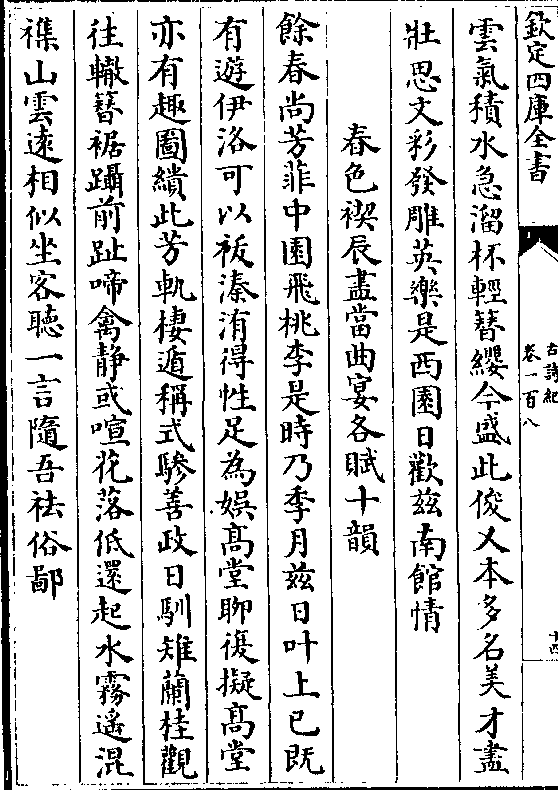 欽定四庫全書
古詩紀
卷一百八
十四
雲氣積水急溜杯輕簪纓今盛此俊乂本多名美才盡
壯思文彩發雕英樂是西園日歡兹南館情
春色禊辰盡當曲宴各賦十韻
餘春尚芳菲中園飛桃李是時乃季月兹日叶上已既
有遊伊洛可以袚溱洧得性足為娯髙堂聊復擬髙堂
亦有趣圖繢此芳軌棲遁稱式驂善政日馴雉蘭桂觀
往轍簮裾躡前趾啼禽静或喧花落低還起水霧遥混
襍山雲逺相似坐客聽一言隨吾祛俗鄙